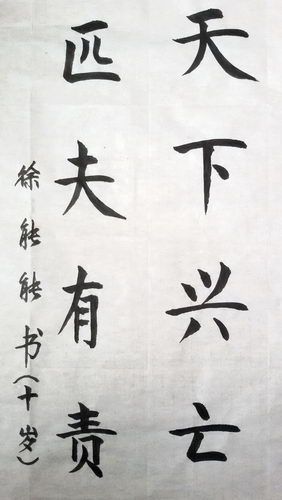 天下兴亡
匹夫有责
徐能能书(十岁)